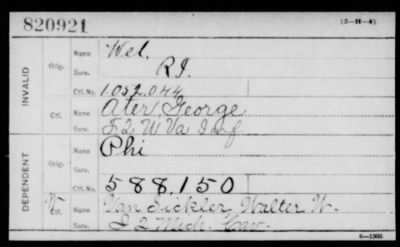 820921 (3—H—4)
INVALID
Orig.
Name Wel.
Serv. R.I.
Ctf. No. 1.052.044
Ctf.
Name Ater, George
Serv. F 2 W Va Inf.
DEPENDENT
Orig.
Name Phi
Serv.
Ctf. No. 588.150
W Ctf.
Name Van Sickler, Walter W.
Serv. I 2 Mich. Cav.
6—1903